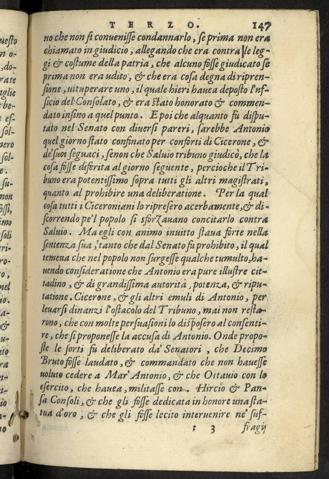 TERZO. 147
no che non si conuenisse condannarlo, se prima non era
chiamato in giudicio, allegando che era contra le leg-
gi & costume della patria, che alcuno fosse giudicato se
prima non era udito, & che era cosa degna di ripren-
sione, uituperare uno, il quale hieri haueа deposto l'uf-
ficio del Consolato, & era stato honorato & commen-
dato insino a quel punto. E poi che alquanto fu dispu-
tato nel Senato con diuersi pareri, sarebbe Antonio
quel giorno stato confinato per conforti di Cicerone, &
de suoi seguaci, se non che Saluio tribuno giudicò, che la
cosa fosse diferita al giorno seguente, percioche il Tri-
buno era potentissimo sopra tutti gli altri magistrati,
quanto al prohibire una deliberatione. Per la qual
cosa tutti i Ciceroniani lo ripresero acerbamente, & di-
scorrendo pe'l popolo si sforzauano concitarlo contra
Saluio. Ma egli con animo inuitto staua forte nella
sentenza sua, tanto che dal Senato fu prohibito, il qual
temena che nel popolo non surgesse qualche tumulto, ha-
uendo consideratione che Antonio era pure illustre cit-
tadino, & di grandissima autorità, potenza, & ripu-
tatione. Cicerone, & gli altri emuli di Antonio, per
leuarsi dinanzi l'ostacolo del Tribuno, mai non resta-
rono, che con molte persuasioni lo disposero al consenti-
re, che si proponesse la accusa di Antonio. Onde propo-
ste le sorti fu deliberato da' Senatori, che Decimo
Bruto fosse laudato, & commandato che non hauesse
uoluto cedere a Mar' Antonio, & che Ottauio con lo
esercito, che hauea, militasse con Hircio & Pan-
sa Consoli, & che gli fosse dedicata in honore una sta-
tua d'oro, & che gli fosse lecito interuenire ne' suf-
t 3 fragij